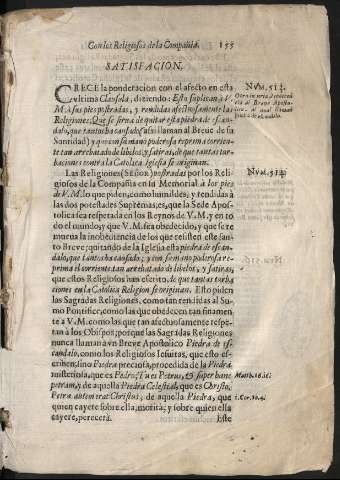 Con los Religiosos de la Compañia. 155
SATISFACION.
CRECE la ponderacion con el afecto en esta
vltima Clausola, diziendo: Esto suplican à V.
M. à sus pies postradas, y rendidas afectuosamente las
Religiones, Que se sirva de quitar esta piedra de escan-
dalo, que tantos ha causado (assi llaman al Breue de su
Santidad) y que con su mano poderosa reprima corrien-
te tan arrebatado de libelos, y satiras, de que tantas tur-
baciones contra la Catolica Iglesia se originan.
Las Religiones (Señor) postradas por los Reli-
giosos de la Compañia en su Memorial à los pies
de V. M. lo que piden, como humildes, y rendidas à
las dos potestades Supremas; es, que la Sede Apos-
tolica sea respetada en los Reynos de V. M. y en to
do el mundo; y que V. M. sea obedecido, y que se re
mueua la inobediencia de los que resisten este san-
to Breue; quitando de la Iglesia esta piedra de escan-
dalo, que tantos ha causado; y con su mano poderosa re-
prima el corriente tan arrebatado de libelos, y satiras,
que estos Religiosos han escrito, de que tantas turba-
ciones en la Catolica Religion se originan. Esto piden
las Sagradas Religiones, como tan rendidas al Su-
mo Pontifice, como las que obedecen tan finamen-
te à V. M. como las que tan afectuosamente respe-
tan à los Obispos; porque las Sagradas Religiones
nunca llaman à vn Breue Apostolico Piedra de es-
candalo, como los Religiosos Iesuitas, que esto es-
criuen, sino Piedra preciosa, procedida de la Piedra
misteriosa, que es Pedro; Tu es Petrus, & super hanc
petram, y de aquella Piedra Celestial, que es Christo,
Petra autem erat Christus; de aquella Piedra, que
quien cayere sobre ella, morirà; y sobre quien ella
cayere, perecerà. Este
Nvm. 513.
Nvm. 514.
Matth. 16. 18.
1. Cor. 10. 4.